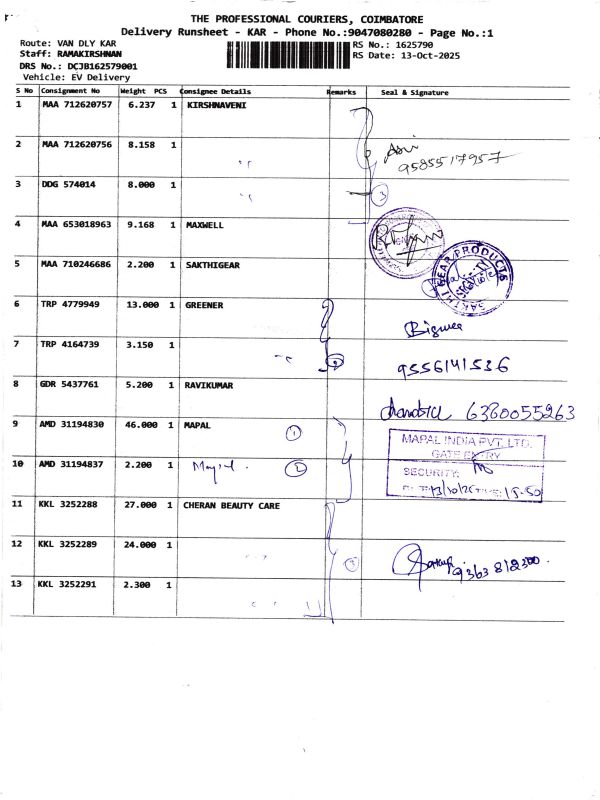 THE PROFESSIONAL COURIERS, COIMBATORE
Delivery Runsheet - KAR - Phone No.:9047080280 - Page No.:1
Route: VAN DLY KAR
Staff: RAMAKIRSHNAN
DRS No.: DCJB162579001
Vehicle: EV Delivery
RS No.: 1625790
RS Date: 13-Oct-2025
S No Consignment No Weight PCS Consignee Details Remarks Seal & Signature
1 MAA 712620757 6.237 1 KIRSHNAVENI
2 MAA 712620756 8.158 1
9585517957
3 DDG 574014 8.000 1 3
4 MAA 653018963 9.168 1 MAXWELL
5 MAA 710246686 2.200 1 SAKTHIGEAR
SAKTHI GEAR PRODUCTS
6 TRP 4779949 13.000 1 GREENER
7 TRP 4164739 3.150 1
9556141536
8 GDR 5437761 5.200 1 RAVIKUMAR
6380055263
9 AMD 31194830 46.000 1 MAPAL 1
MAPAL INDIA PVT. LTD.
GATE ENTRY
10 AMD 31194837 2.200 1 2
SECURITY:
13/10/25 15-50
11 KKL 3252288 27.000 1 CHERAN BEAUTY CARE
12 KKL 3252289 24.000 1 3
9363812300
13 KKL 3252291 2.300 1